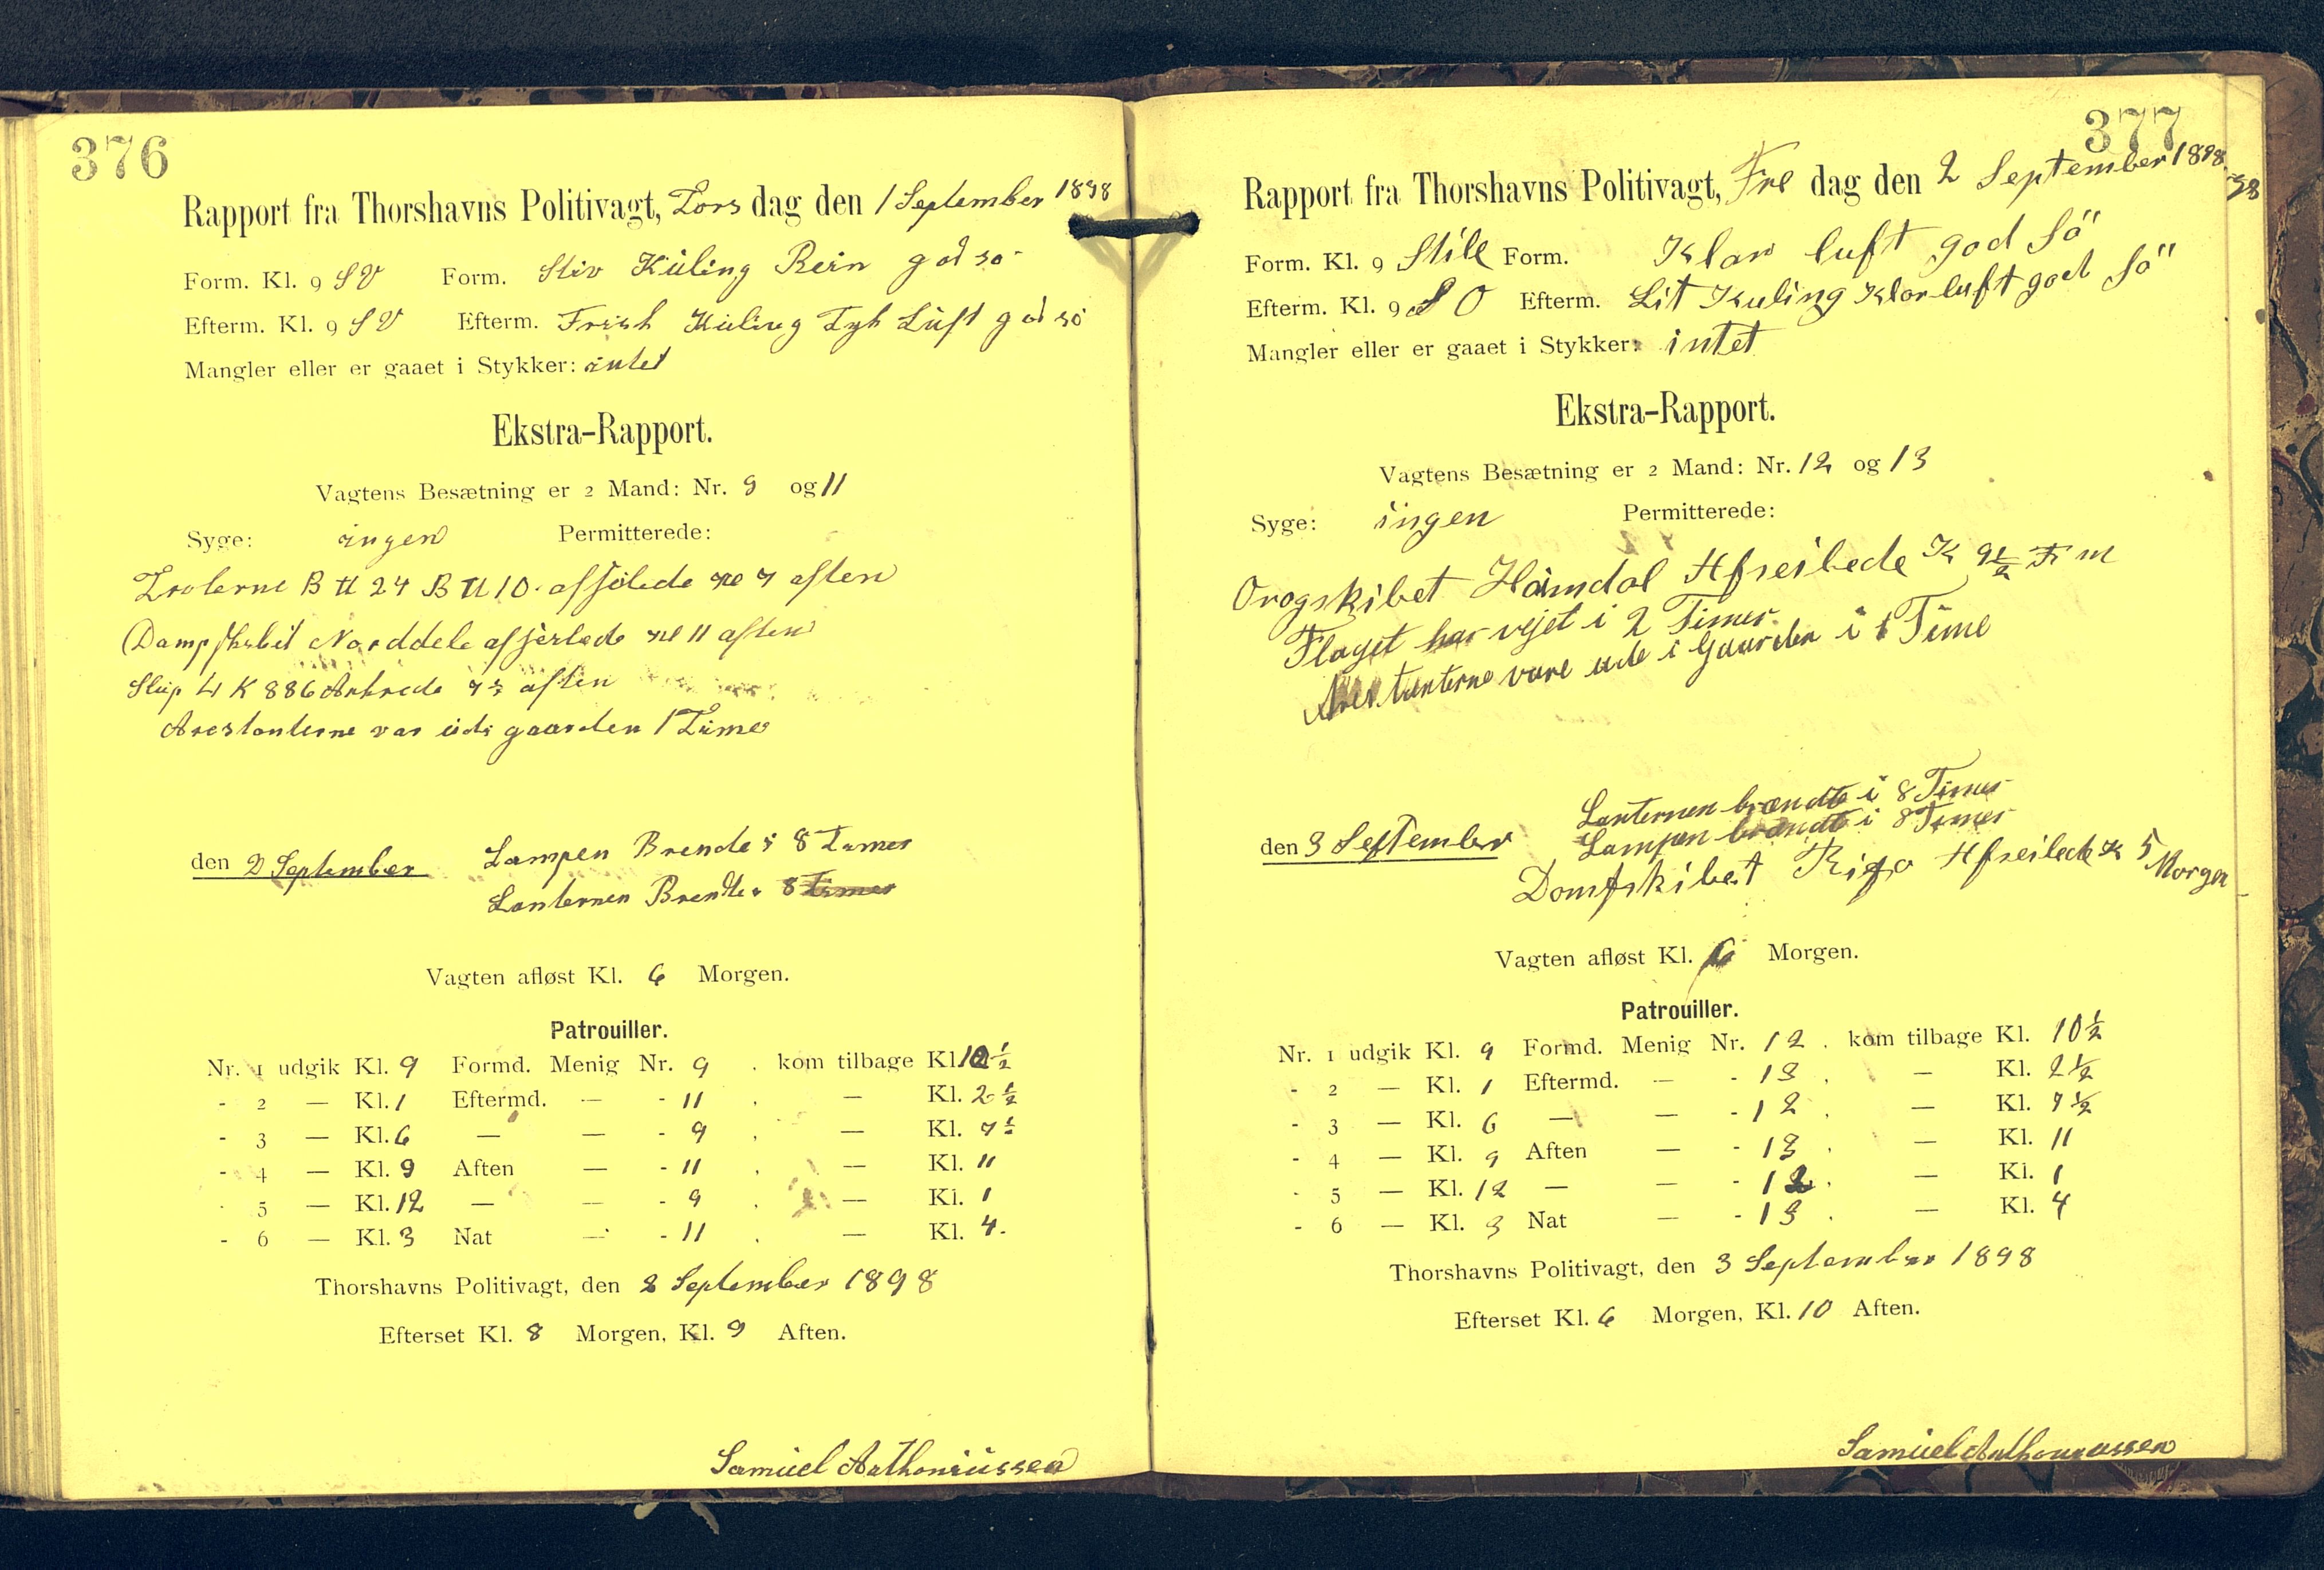 376
Rapport fra Thorshavns Politivagt, Tors dag den 1 September 1898
Form. Kl. 9 SV Form. Stiv Küling Rein god sø
Efterm. Kl. 9 SV Efterm. Frisk Küling Tyk Lüft god sö
Mangler eller er gaaet i Stykker: intet
Ekstra-Rapport.
Vagtens Besætning er 2 Mand: Nr. 9 og 11
Syge: ingen Permitterede:
Trolerne B U 24 B U 10. afsjelede 7 aften
Dampskibet Norddele afsjerlede kl 11 aften
Slup L K 886 Ankrede 7½ aften
Arestanterne var üdi gaarden 1 Time
den 2 September Lampen Brende i 8 Timer
Lanternen Brente i 8 Timer
Vagten afløst Kl. 6 Morgen.
Patrouiller.
Nr. 1 udgik Kl. 9 Formd. Menig Nr. 9 . kom tilbage Kl. 10 ½
- 2 — Kl. 1 Eftermd. — - 11 . — Kl. 2 ½
- 3 — Kl. 6 — — - 9 . — Kl. 7 ½
- 4 — Kl. 9 Aften — - 11 . — Kl. 11
- 5 — Kl. 12 — — - 9 . — Kl. 1
- 6 — Kl. 3 Nat — - 11 . — Kl. 4.
Thorshavns Politivagt, den 2 September 1898
Efterset Kl. 8 Morgen, Kl. 9 Aften.
Samüel Anthoniüssen
377
Rapport fra Thorshavns Politivagt, Fre dag den 2 September 1898
98
Form. Kl. 9 Stille Form. Klar luft god Sö
Efterm. Kl. 9 S O Efterm. Lit Kuling Klar luft god Sö
Mangler eller er gaaet i Stykker: intet
Ekstra-Rapport.
Vagtens Besætning er 2 Mand: Nr. 12 og 13
Syge: ingen Permitterede:
Orogskibet Haimdal Afseilede K 9½ F m
Flaget har vejet i 2 Timer.
Arestanterne vare ude i Gaarden i 1 Time
Lanternen brændte i 8 Timer
den 3 September Lampen brændte i 8 Timer
Domfskibet Rigo Afseilede K 5 Morgen
Vagten afløst Kl. 6 Morgen.
Patrouiller.
Nr. 1 udgik Kl. 9 Formd. Menig Nr. 12 . kom tilbage Kl. 10 ½
- 2 — Kl. 1 Eftermd. — - 13 . — Kl. 2 ½
- 3 — Kl. 6 — — - 12 . — Kl. 7 ½
- 4 — Kl. 9 Aften — - 13 . — Kl. 11
- 5 — Kl. 12 — — - 12 . — Kl. 1
- 6 — Kl. 3 Nat — - 13 . — Kl. 4
Thorshavns Politivagt, den 3 September 1898
Efterset Kl. 6 Morgen, Kl. 10 Aften.
Samüel Anthoniussen